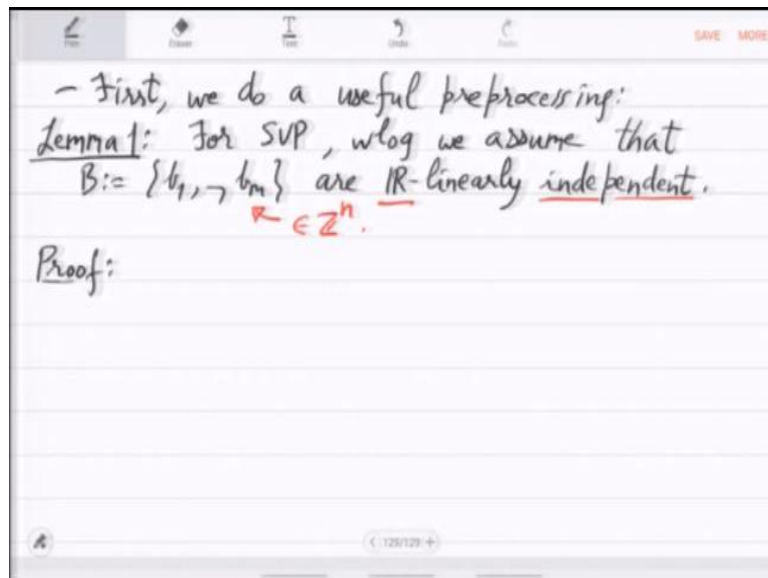 Pen Eraser T Text Undo Redo SAVE MORE
– First, we do a useful preprocessing:
Lemma 1: For SVP, wlog we assume that
B := {b₁, ¬ bₘ} are ℝ-linearly independent.
∈ ℤⁿ.
Proof:
< 129/129 +